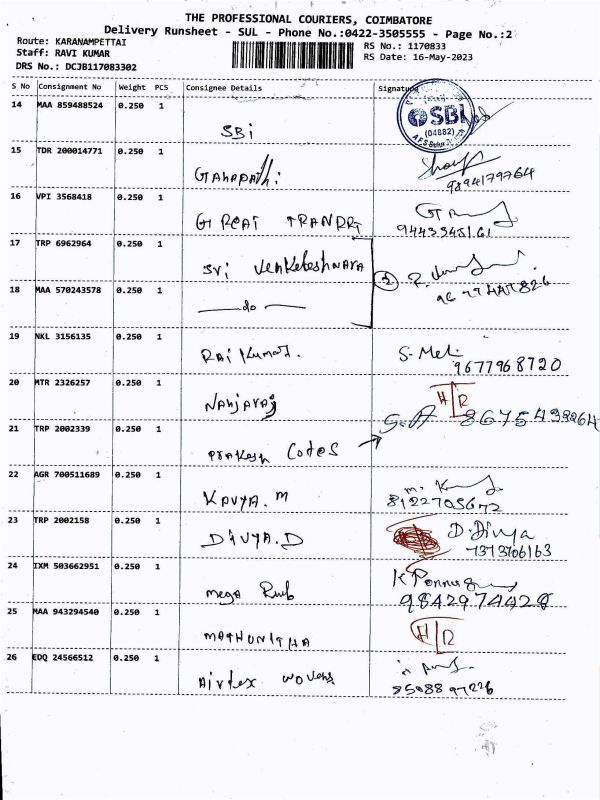 THE PROFESSIONAL COURIERS, COIMBATORE
Delivery Runsheet - SUL - Phone No.:0422-3505555 - Page No.:2
Route: KARANAMPETTAI
Staff: RAVI KUMAR
DRS No.: DCJB117083302
RS No.: 1170833
RS Date: 16-May-2023
S No Consignment No Weight PCS Consignee Details Signature
14 MAA 859488524 0.250 1 SBi
SBI
(04882)
15 TDR 200014771 0.250 1 Ganapathi
9894179764
16 VPI 3568418 0.250 1 GREAT
17 TRP 6962964 0.250 1 Sri Venkateshwara
2
18 MAA 570243578 0.250 1 do
19 NKL 3156135 0.250 1 Raj Kumar. S. Mel.
9677968720
20 MTR 2326257 0.250 1 Nanjaraj H/R
21 TRP 2002339 0.250 1 Prakash Cotes
22 AGR 700511689 0.250 1 KAVYA. M
8122705672
23 TRP 2002158 0.250 1 DIVYA.D D. Divya
7373706163
24 IXM 503662951 0.250 1 Mega Rub
9842974428
25 MAA 943294540 0.250 1 MATHUNITHA H/R
26 EDQ 24566512 0.250 1 Airtex Wovens